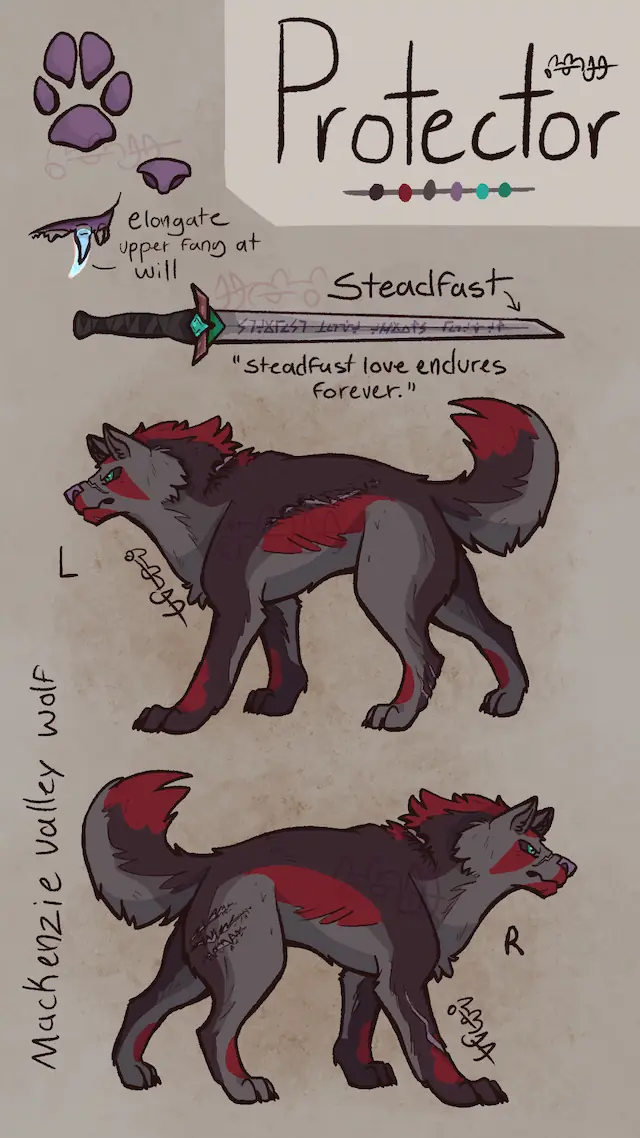 Protector
elongate
upper fang at
will
Steadfast
"Steadfast love endures
forever."
L
Mackenzie Valley Wolf
R